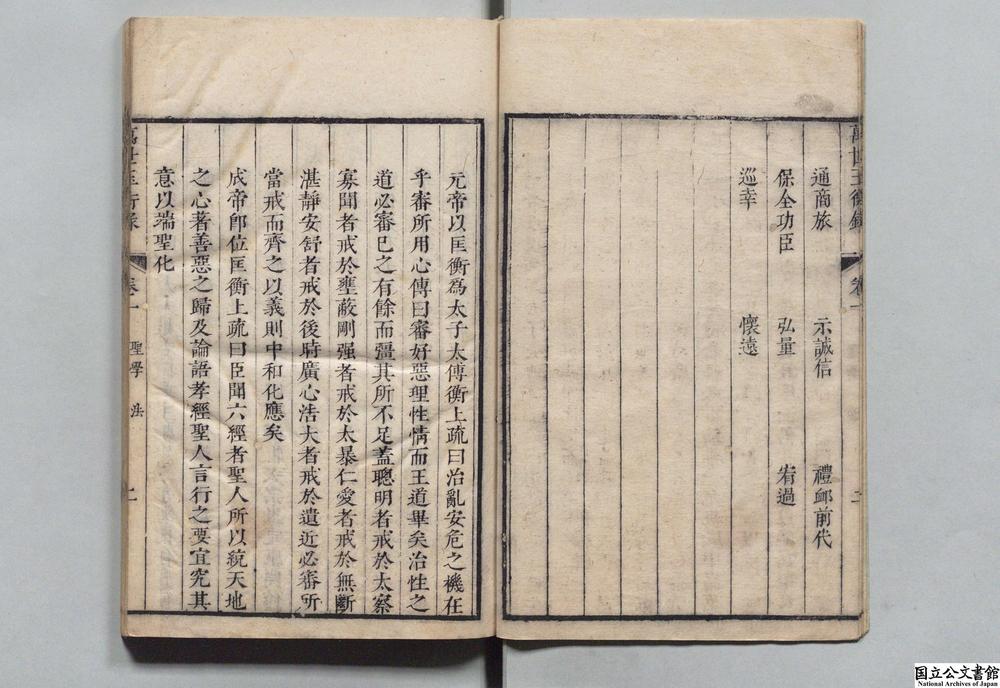 萬世玉衡錄
卷一
二
通商旅 示誠信 禮卹前代
保全功臣 弘量 宥過
巡幸 懷遠
元帝以匡衡為太子太傅衡上疏曰治亂安危之機在
乎審所用心傳曰審好惡理性情而王道畢矣治性之
道必審已之有餘而彊其所不足葢聰明者戒於太察
寡聞者戒於壅蔽剛强者戒於太暴仁愛者戒於無斷
湛靜安舒者戒於後時廣心浩大者戒於遺近必審所
當戒而齊之以義則中和化應矣
成帝卽位匡衡上疏曰臣聞六經者聖人所以統天地
之心著善惡之歸及論語孝經聖人言行之要宜究其
意以端聖化
萬世玉衡錄
卷一
聖學
法
二
国立公文書館
National Archives of Japan